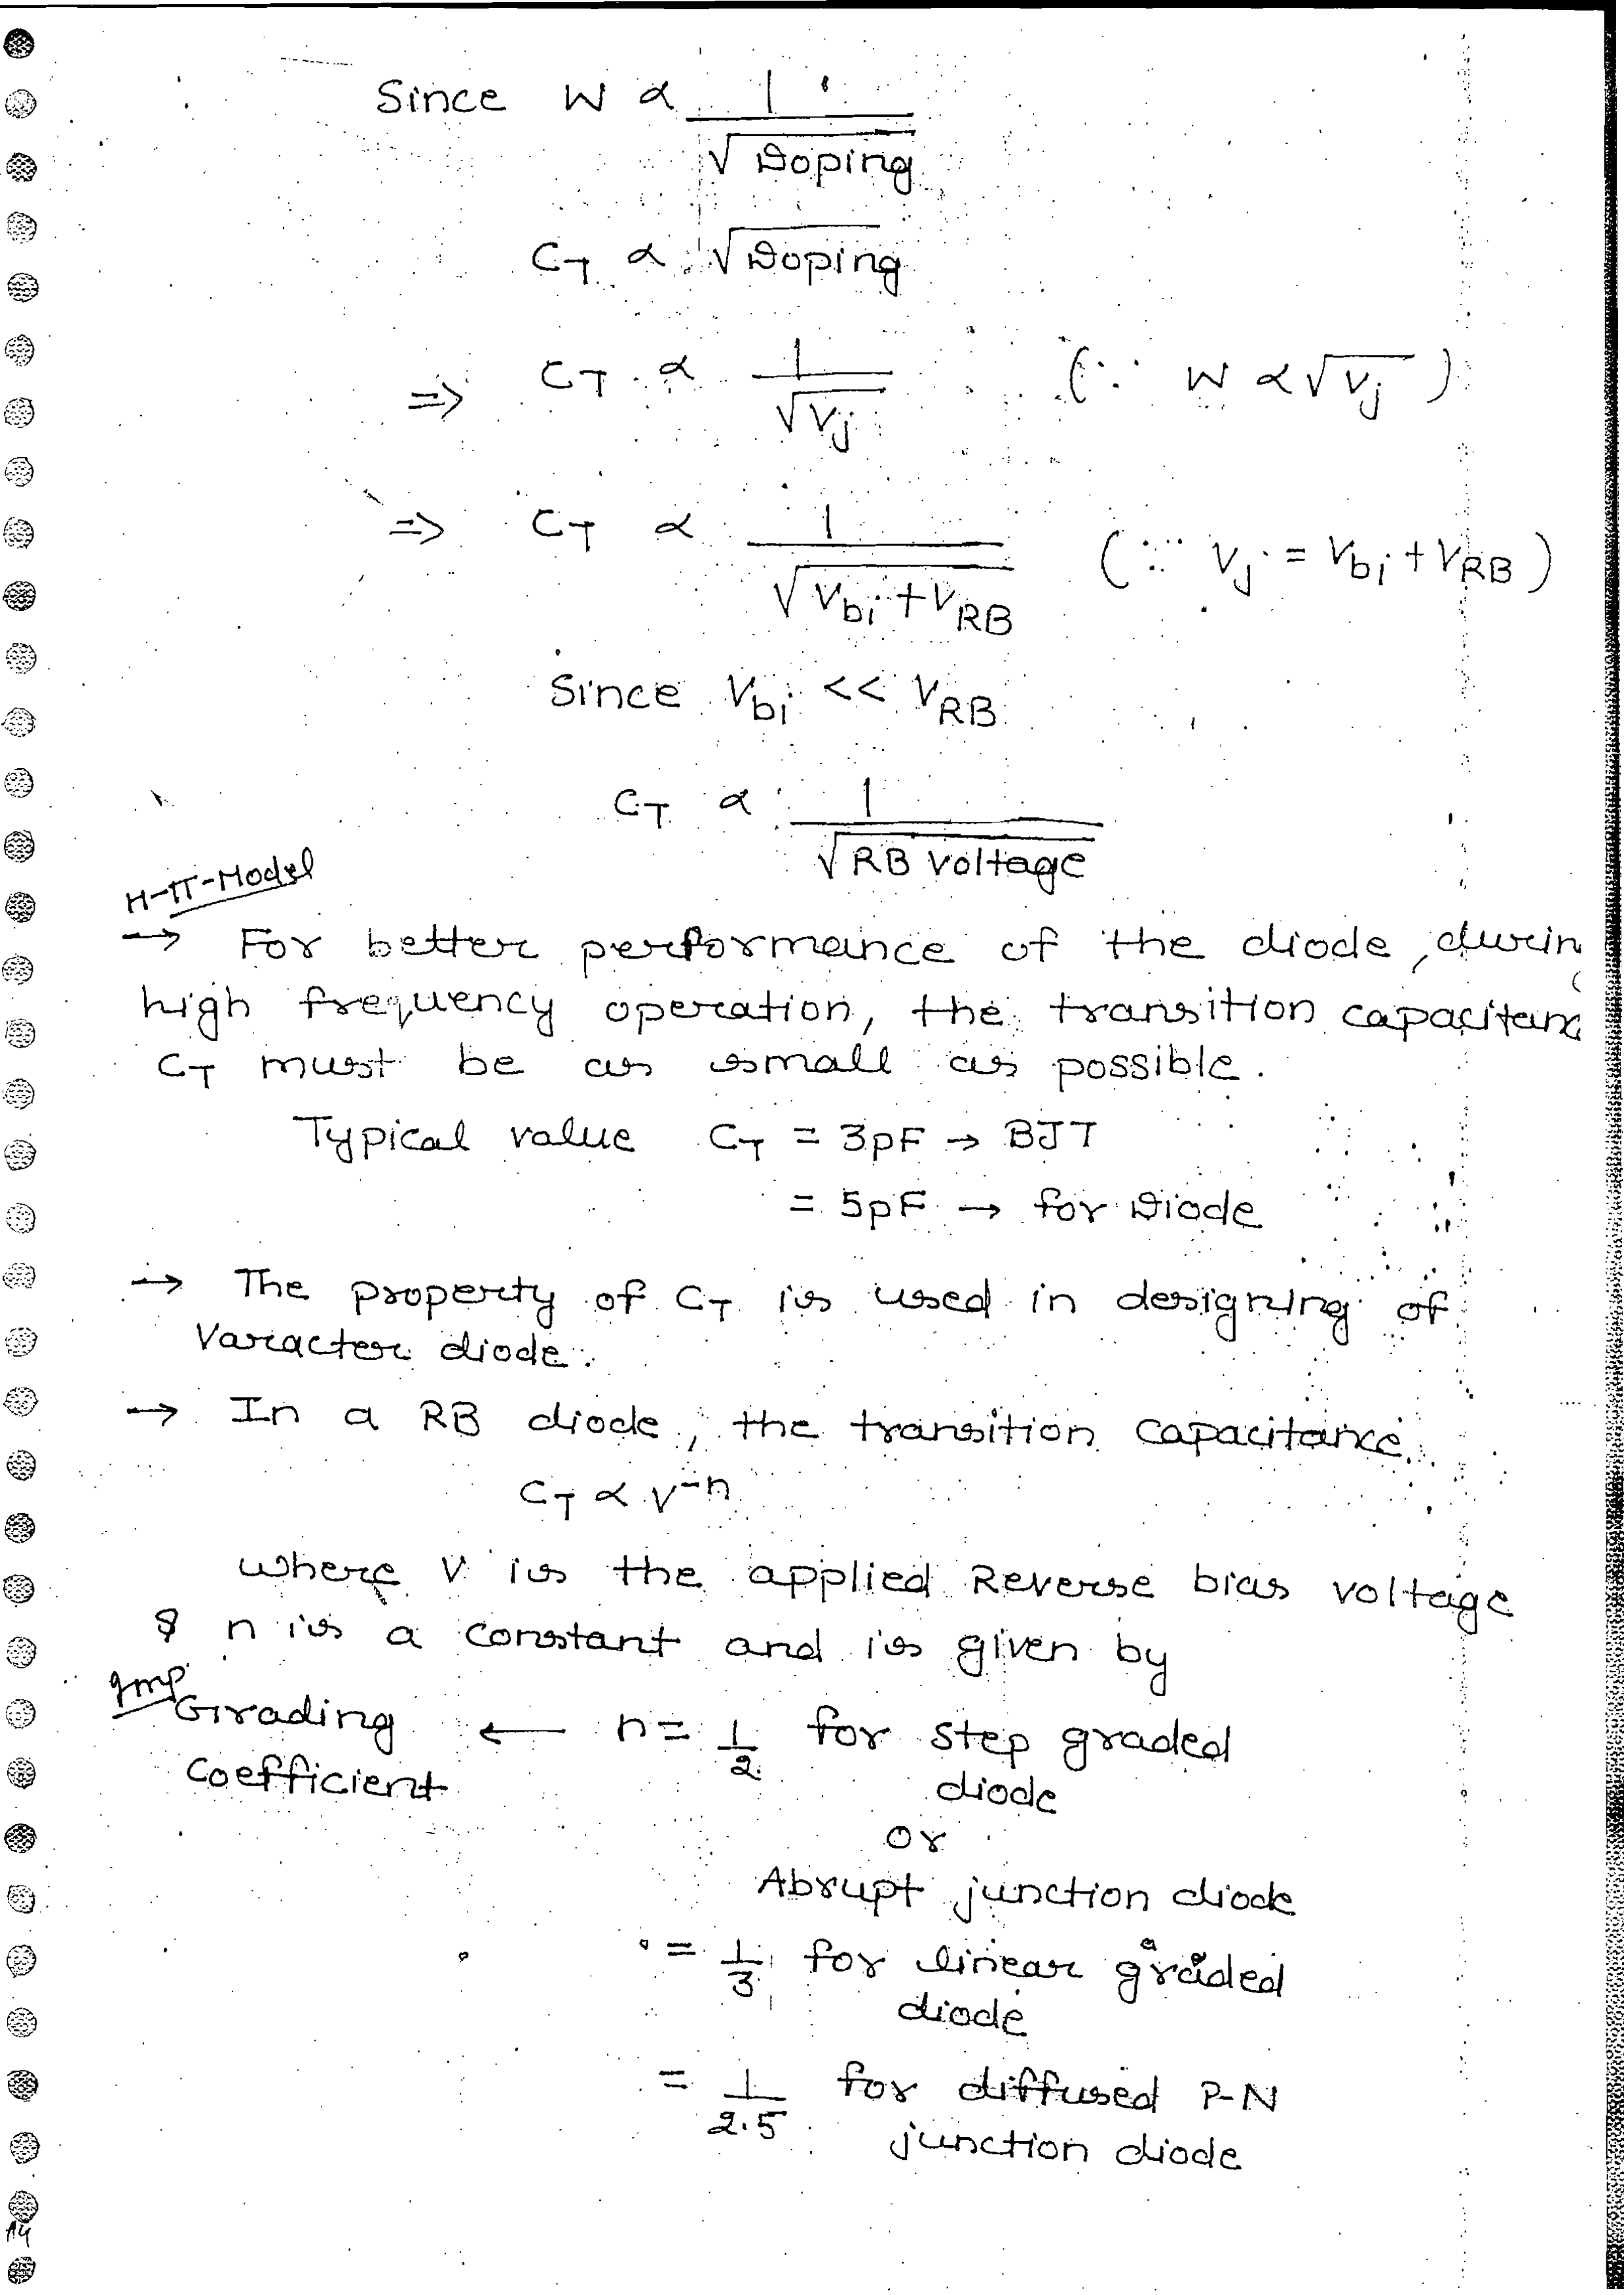 Since W ∝ 1 / √Doping
C_T ∝ √Doping
⇒ C_T ∝ 1 / √V_j (∵ W ∝ √V_j )
⇒ C_T ∝ 1 / √V_bi + V_RB (∵ V_j = V_bi + V_RB )
Since V_bi << V_RB
C_T ∝ 1 / √RB Voltage
H-π-Model
→ For better performance of the diode, durin
high frequency operation, the transition capacitanc
C_T must be as small as possible.
Typical value C_T = 3pF → BJT
= 5pF → for Diode
→ The property of C_T is used in designing of
Varactor diode.
→ In a RB diode, the transition capacitance
C_T ∝ V^-n
where V is the applied Reverse bias voltage
& n is a constant and is given by
Imp
Grading ← n = 1/2 for step graded
Coefficient diode
or
Abrupt junction diode
= 1/3 for linear graded
diode
= 1/2.5 for diffused P-N
junction diode
14